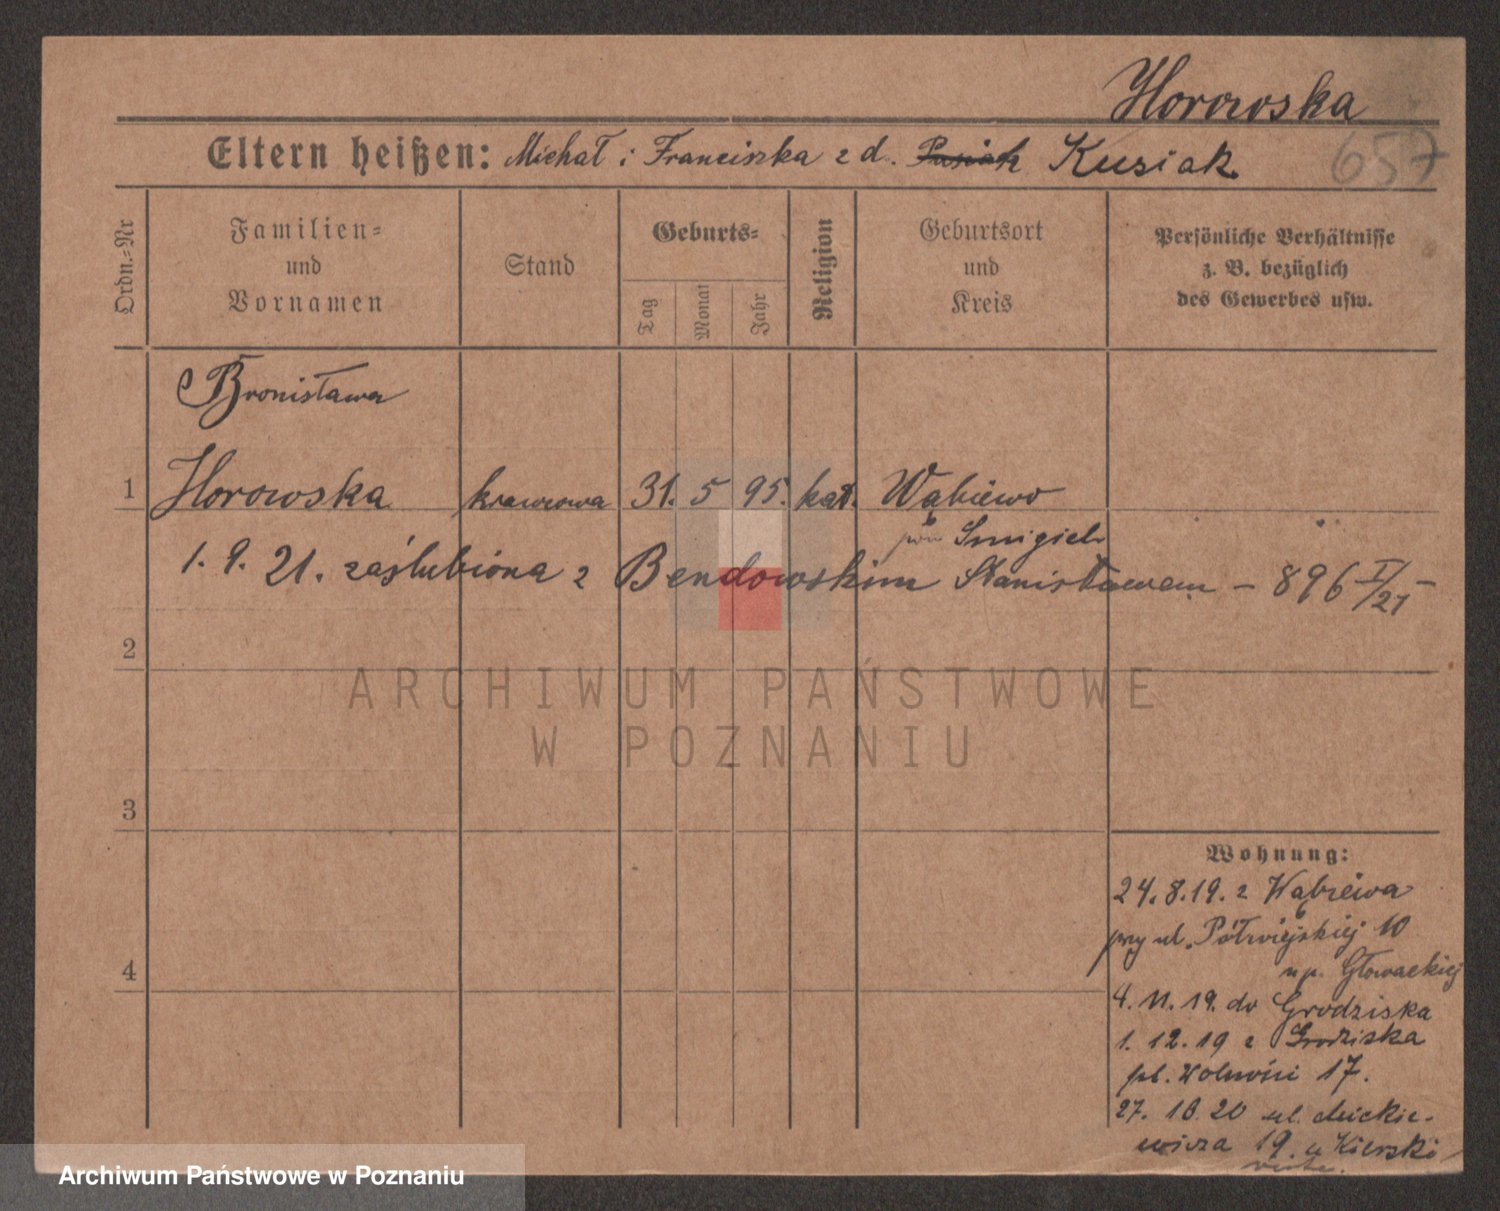 Horowska
657
Eltern heißen: Michał i Franciszka z d. Pusiak Kusiak
Ordn.-Nr
Familien=
und
Vornamen
Stand
Geburts=
Tag
Monat
Jahr
Religion
Geburtsort
und
Kreis
Persönliche Verhältnisse
z. B. bezüglich
des Gewerbes usw.
Bronisława
1 Horowska krawcowa 31. 5 95. kat. Wąbiewo
Smigiel
1. 9. 21. zaślubiona z Bendowskim Stanisławem – 896 I/21 –
2
ARCHIWUM PAŃSTWOWE
W POZNANIU
3
4
Wohnung:
24.8.19. z Wąbiewa
przy ul. Półwiejskiej 10
u p. Głowackiej
4. 11. 19. do Grodziska
1. 12. 19 z Grodziska
pl. Wolności 17.
27. 10 20 ul. Mickie-
wicza 19. u Kierski
Archiwum Państwowe w Poznaniu